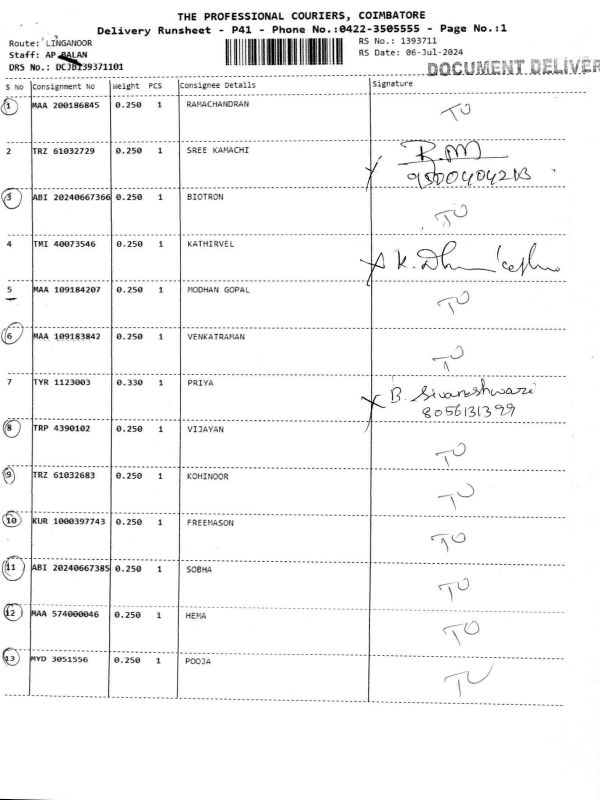 THE PROFESSIONAL COURIERS, COIMBATORE
Delivery Runsheet - P41 - Phone No.:0422-3505555 - Page No.:1
Route: LINGANOOR
RS No.: 1393711
Staff: AP BALAN
RS Date: 06-Jul-2024
DRS No.: DCJBI39371101
DOCUMENT DELIVER
S No Consignment No Weight PCS Consignee Details Signature
1 MAA 200186845 0.250 1 RAMACHANDRAN TO
2 TRZ 61032729 0.250 1 SREE KAMACHI
3 ABI 20240667366 0.250 1 BIOTRON TO
4 TMI 40073546 0.250 1 KATHIRVEL
5 MAA 109184207 0.250 1 MODHAN GOPAL TO
6 MAA 109183842 0.250 1 VENKATRAMAN TO
7 TYR 1123003 0.330 1 PRIYA B. Sivaneshwari
8056131399
8 TRP 4390102 0.250 1 VIJAYAN TO
9 TRZ 61032683 0.250 1 KOHINOOR TO
10 KUR 1000397743 0.250 1 FREEMASON TO
11 ABI 20240667385 0.250 1 SOBHA TO
12 MAA 574000046 0.250 1 HEMA TO
13 MYD 3051556 0.250 1 POOJA TO